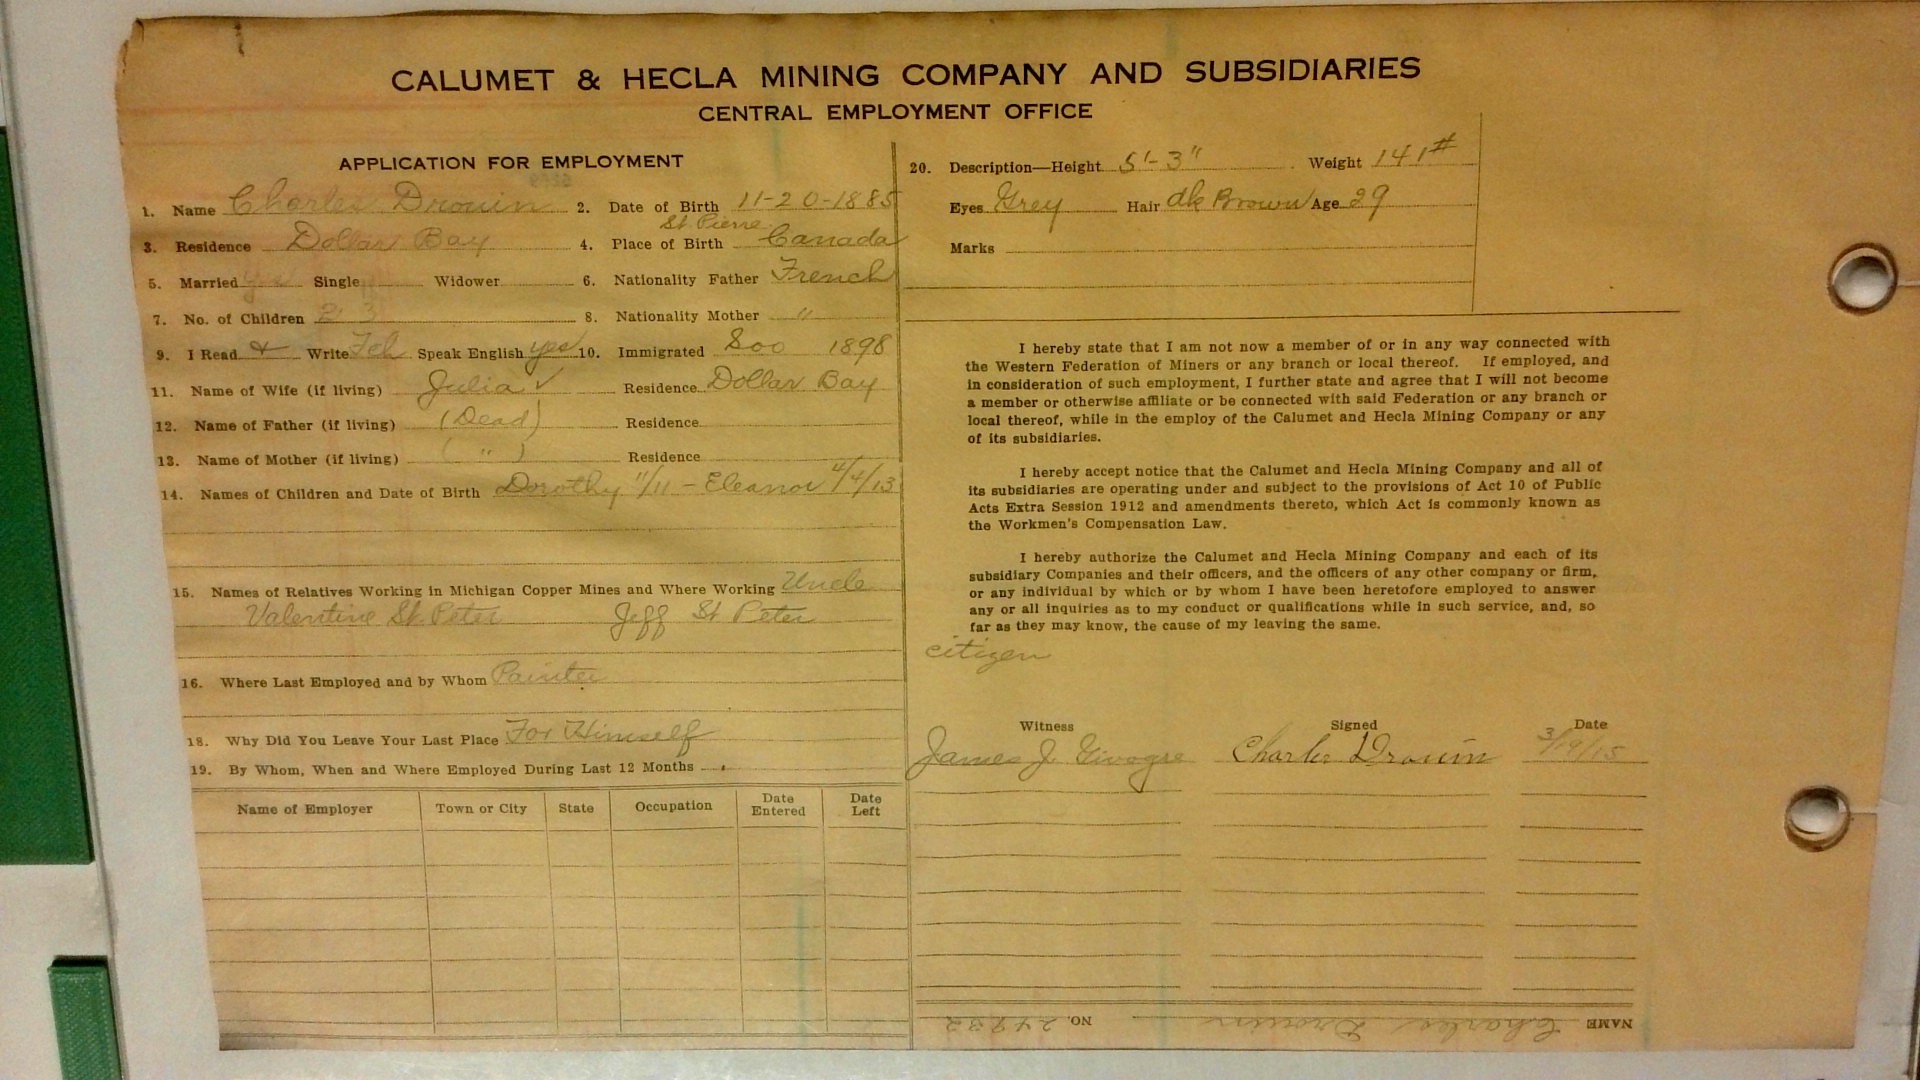 CALUMET & HECLA MINING COMPANY AND SUBSIDIARIES
CENTRAL EMPLOYMENT OFFICE
APPLICATION FOR EMPLOYMENT
1. Name Charles Drouin 2. Date of Birth 11-20-1885
St. Pierre
3. Residence Dollar Bay 4. Place of Birth Canada
5. Married yes Single Widower 6. Nationality Father French
7. No. of Children 2 3 8. Nationality Mother "
9. I Read & Write Fch Speak English yes 10. Immigrated Soo 1898
11. Name of Wife (if living) Julia ✓ Residence Dollar Bay
12. Name of Father (if living) (Dead) Residence
13. Name of Mother (if living) ( " ) Residence
14. Names of Children and Date of Birth Dorothy 11/11 - Eleanor 4/4/13
15. Names of Relatives Working in Michigan Copper Mines and Where Working Uncle
Valentine St. Peter Jeff St Peter
16. Where Last Employed and by Whom Painter
18. Why Did You Leave Your Last Place For Himself
19. By Whom, When and Where Employed During Last 12 Months
Name of Employer Town or City State Occupation Date Entered Date Left
20. Description—Height 5'-3" Weight 141#
Eyes Grey Hair dk Brown Age 29
Marks
I hereby state that I am not now a member of or in any way connected with
the Western Federation of Miners or any branch or local thereof. If employed, and
in consideration of such employment, I further state and agree that I will not become
a member or otherwise affiliate or be connected with said Federation or any branch or
local thereof, while in the employ of the Calumet and Hecla Mining Company or any
of its subsidiaries.
I hereby accept notice that the Calumet and Hecla Mining Company and all of
its subsidiaries are operating under and subject to the provisions of Act 10 of Public
Acts Extra Session 1912 and amendments thereto, which Act is commonly known as
the Workmen's Compensation Law.
I hereby authorize the Calumet and Hecla Mining Company and each of its
subsidiary Companies and their officers, and the officers of any other company or firm,
or any individual by which or by whom I have been heretofore employed to answer
any or all inquiries as to my conduct or qualifications while in such service, and, so
far as they may know, the cause of my leaving the same.
citizen
Witness Signed Date
James J. Charles Drouin 3/19/15
NAME Charles Drouin NO. 24932